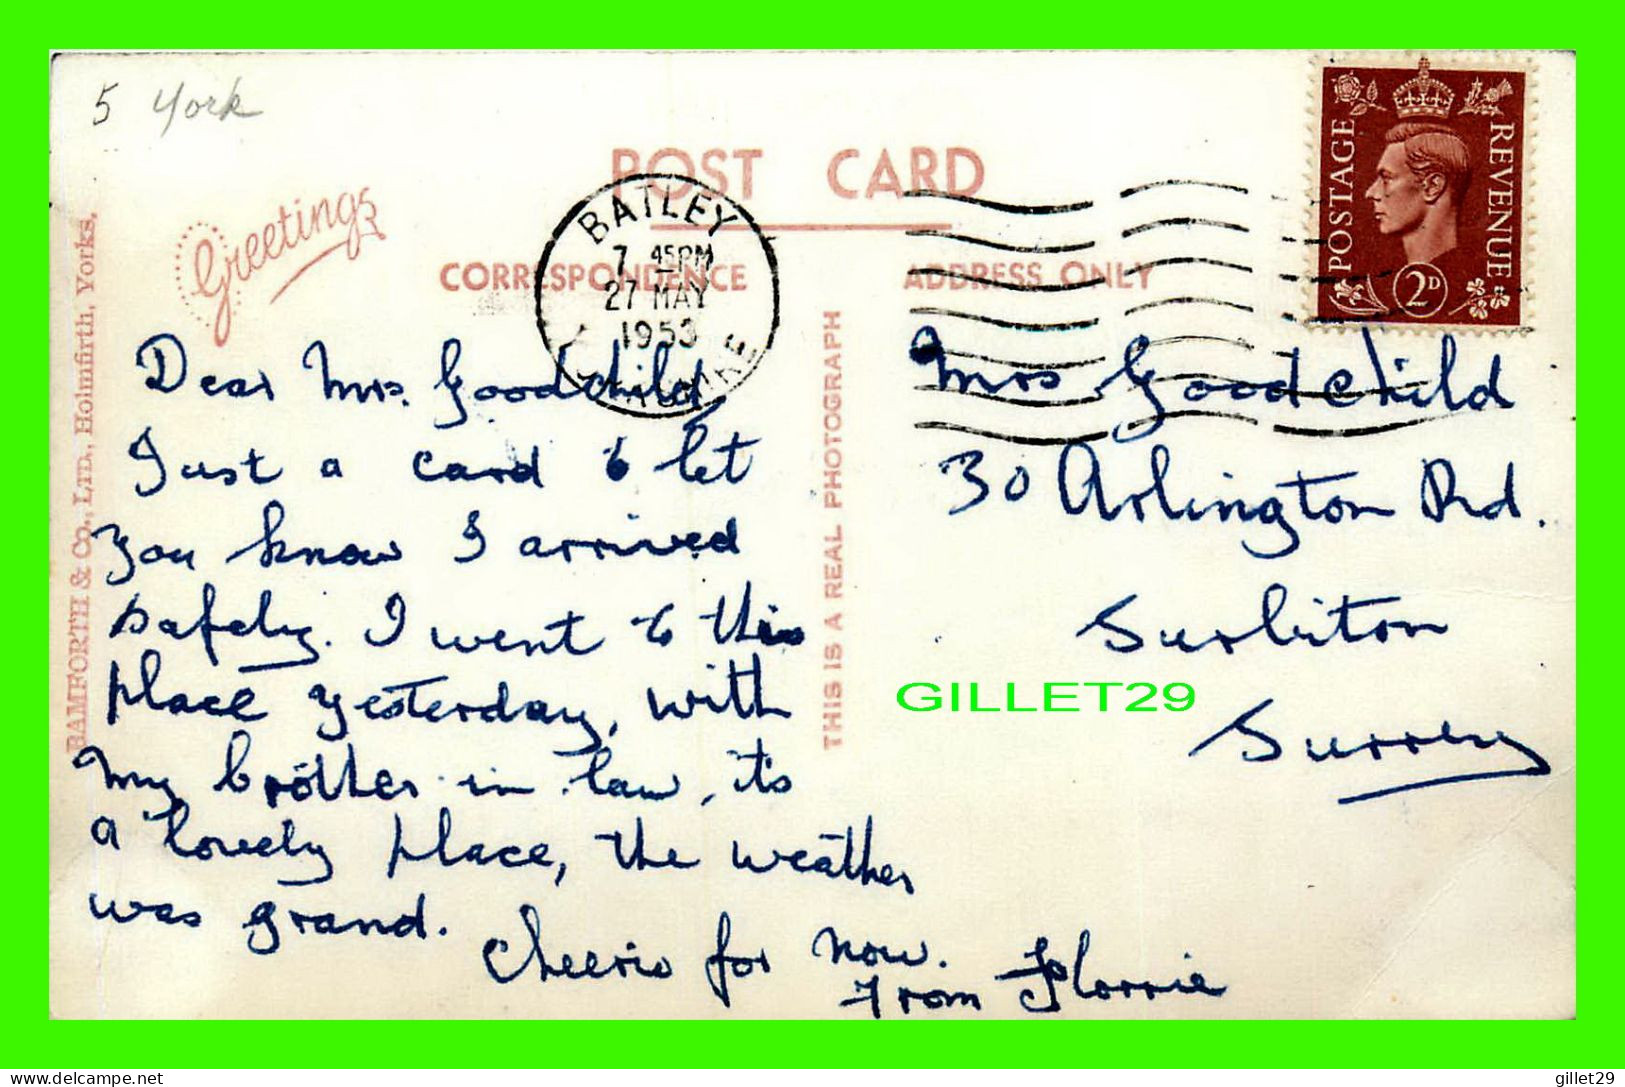 5 York
POST CARD
Greetings
CORRESPONDENCE
ADDRESS ONLY
BATLEY
7 45PM
27 MAY
1953
YORKSHIRE
POSTAGE
REVENUE
2D
BAMFORTH & Co., LTD., Holmfirth, Yorks.
THIS IS A REAL PHOTOGRAPH
Dear Mrs. Goodchild,
Just a card to let
you know I arrived
safely. I went to this
place yesterday, with
my brother in law, it's
a lovely place, the weather
was grand.
Cheerio for now.
From Florrie
Mrs Goodchild
30 Arlington Rd.
Surbiton
Surrey
GILLET29
delcampe.net
gillet29